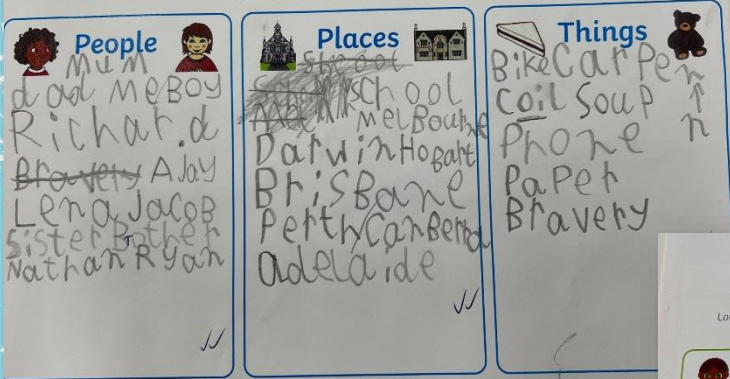 People
Mum
dad Me Boy
Richard
Bravery AJay
Lena Jacob
Sister Brother
Nathan Ryan
Places
School
School
Melbourne
Darwin Hobart
Brisbane
Perth Canberra
adelaide
Things
Bike Carpenter
Coil Soup
Phone
Paper
Bravery